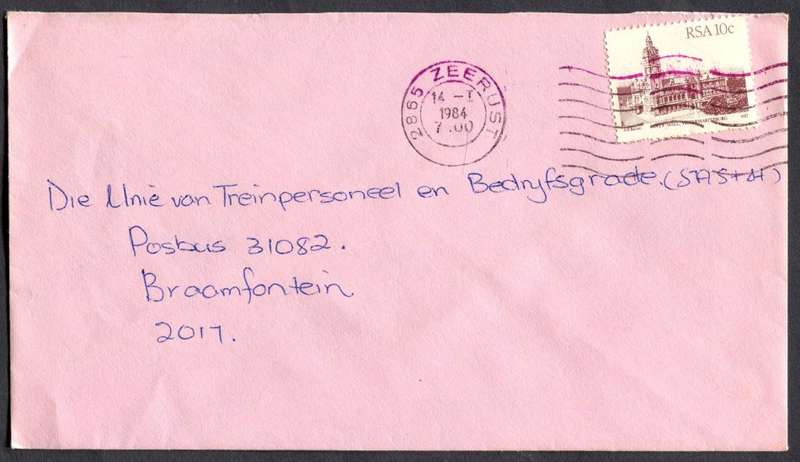 RSA 10c
2865 ZEERUST
14 -I
1984
7.00
Die Unie van Treinpersoneel en Bedryfsgrade.
Posbus 31082.
Braamfontein
2017.